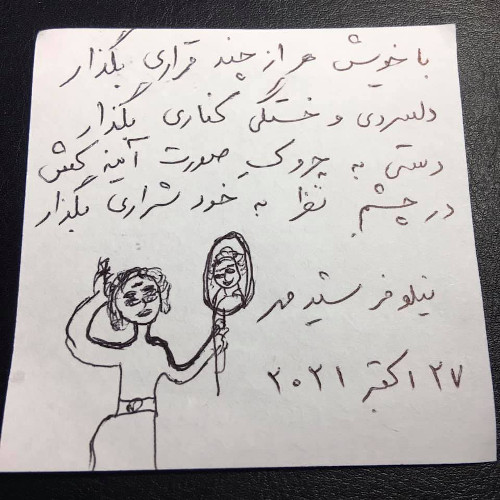 با خویش هر از چند قراری بگذار
دلسردی و خستگی کناری بگذار
دستی به چروکِ صورت آینه کش
در چشم، نظر به خود شراری بگذار
نیلوفر شیدمهر
۲۷ اکتبر ۲۰۲۱